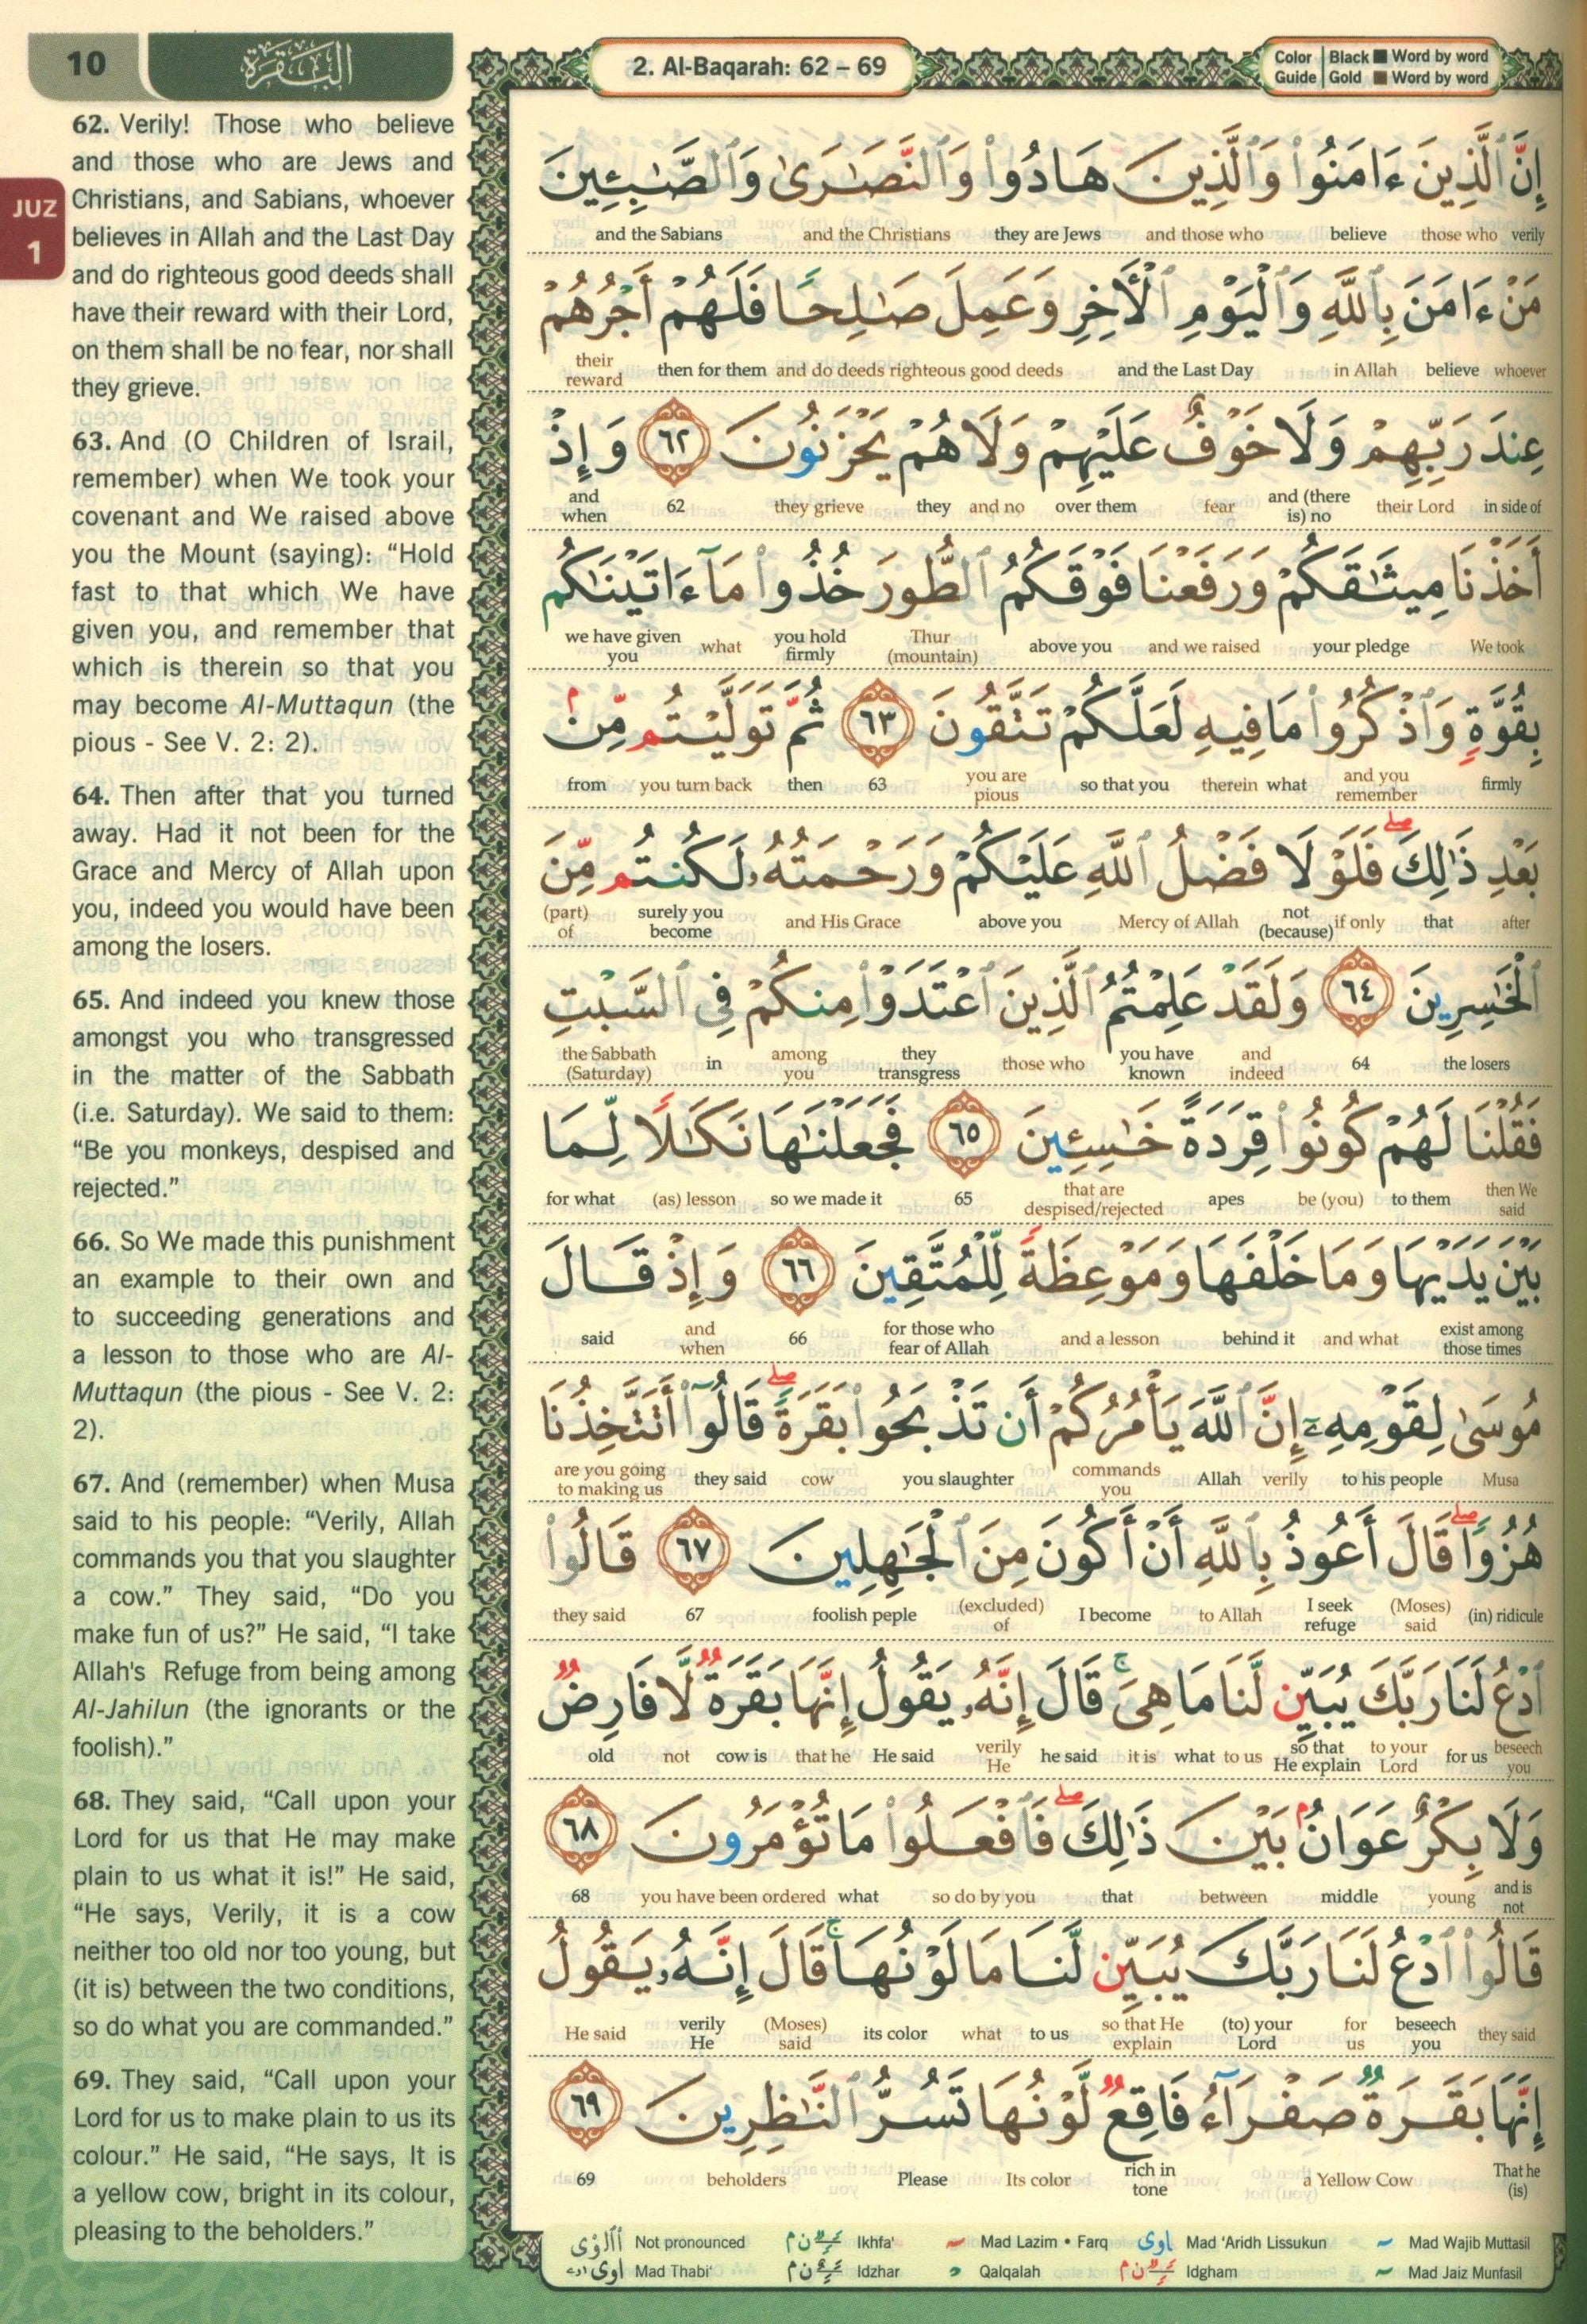 10
البقرة
2. Al-Baqarah: 62 – 69
Color Guide | Black ■ Word by word
Gold ■ Word by word
JUZ
1
62. Verily! Those who believe
and those who are Jews and
Christians, and Sabians, whoever
believes in Allah and the Last Day
and do righteous good deeds shall
have their reward with their Lord,
on them shall be no fear, nor shall
they grieve.
63. And (O Children of Israil,
remember) when We took your
covenant and We raised above
you the Mount (saying): “Hold
fast to that which We have
given you, and remember that
which is therein so that you
may become Al-Muttaqun (the
pious - See V. 2: 2).
64. Then after that you turned
away. Had it not been for the
Grace and Mercy of Allah upon
you, indeed you would have been
among the losers.
65. And indeed you knew those
amongst you who transgressed
in the matter of the Sabbath
(i.e. Saturday). We said to them:
“Be you monkeys, despised and
rejected.”
66. So We made this punishment
an example to their own and
to succeeding generations and
a lesson to those who are Al-
Muttaqun (the pious - See V. 2:
2).
67. And (remember) when Musa
said to his people: “Verily, Allah
commands you that you slaughter
a cow.” They said, “Do you
make fun of us?” He said, “I take
Allah's Refuge from being among
Al-Jahilun (the ignorants or the
foolish).”
68. They said, “Call upon your
Lord for us that He may make
plain to us what it is!” He said,
“He says, Verily, it is a cow
neither too old nor too young, but
(it is) between the two conditions,
so do what you are commanded.”
69. They said, “Call upon your
Lord for us to make plain to us its
colour.” He said, “He says, It is
a yellow cow, bright in its colour,
pleasing to the beholders.”
إِنَّ ٱلَّذِينَ ءَامَنُوا۟ وَٱلَّذِينَ هَادُوا۟ وَٱلنَّصَـٰرَىٰ وَٱلصَّـٰبِـِٔينَ
and the Sabians and the Christians they are Jews and those who believe those who verily
مَنْ ءَامَنَ بِٱللَّهِ وَٱلْيَوْمِ ٱلْـَٔاخِرِ وَعَمِلَ صَـٰلِحًا فَلَهُمْ أَجْرُهُمْ
their reward then for them and do deeds righteous good deeds and the Last Day in Allah believe whoever
عِندَ رَبِّهِمْ وَلَا خَوْفٌ عَلَيْهِمْ وَلَا هُمْ يَحْزَنُونَ ٦٢ وَإِذْ
and when 62 they grieve they and no over them fear and (there is) no their Lord in side of
أَخَذْنَا مِيثَـٰقَكُمْ وَرَفَعْنَا فَوْقَكُمُ ٱلطُّورَ خُذُوا۟ مَآ ءَاتَيْنَـٰكُم
we have given you what you hold firmly Thur (mountain) above you and we raised your pledge We took
بِقُوَّةٍ وَٱذْكُرُوا۟ مَا فِيهِ لَعَلَّكُمْ تَتَّقُونَ ٦٣ ثُمَّ تَوَلَّيْتُم مِّنۢ
from you turn back then 63 you are pious so that you therein what and you remember firmly
بَعْدِ ذَٰلِكَ ۖ فَلَوْلَا فَضْلُ ٱللَّهِ عَلَيْكُمْ وَرَحْمَتُهُۥ لَكُنتُم مِّنَ
(part) of surely you become and His Grace above you Mercy of Allah not (because) if only that after
ٱلْخَـٰسِرِينَ ٦٤ وَلَقَدْ عَلِمْتُمُ ٱلَّذِينَ ٱعْتَدَوْا۟ مِنكُمْ فِى ٱلسَّبْتِ
the Sabbath (Saturday) in among you they transgress those who you have known and indeed 64 the losers
فَقُلْنَا لَهُمْ كُونُوا۟ قِرَدَةً خَـٰسِـِٔينَ ٦٥ فَجَعَلْنَـٰهَا نَكَـٰلًا لِّمَا
for what (as) lesson so we made it 65 that are despised/rejected apes be (you) to them then We said
بَيْنَ يَدَيْهَا وَمَا خَلْفَهَا وَمَوْعِظَةً لِّلْمُتَّقِينَ ٦٦ وَإِذْ قَالَ
said and when 66 for those who fear of Allah and a lesson behind it and what exist among those times
مُوسَىٰ لِقَوْمِهِۦٓ إِنَّ ٱللَّهَ يَأْمُرُكُمْ أَن تَذْبَحُوا۟ بَقَرَةً ۖ قَالُوٓا۟ أَتَتَّخِذُنَا
are you going to making us they said cow you slaughter commands you Allah verily to his people Musa
هُزُوًا ۖ قَالَ أَعُوذُ بِٱللَّهِ أَنْ أَكُونَ مِنَ ٱلْجَـٰهِلِينَ ٦٧ قَالُوا۟
they said 67 foolish peple (excluded) of I become to Allah I seek refuge (Moses) said (in) ridicule
ٱدْعُ لَنَا رَبَّكَ يُبَيِّن لَّنَا مَا هِىَ ۚ قَالَ إِنَّهُۥ يَقُولُ إِنَّهَا بَقَرَةٌ لَّا فَارِضٌ
old not cow is that he He said verily He he said it is what to us so that He explain to your Lord for us beseech you
وَلَا بِكْرٌ عَوَانٌۢ بَيْنَ ذَٰلِكَ ۖ فَٱفْعَلُوا۟ مَا تُؤْمَرُونَ ٦٨
68 you have been ordered what so do by you that between middle young and is not
قَالُوا۟ ٱدْعُ لَنَا رَبَّكَ يُبَيِّن لَّنَا مَا لَوْنُهَا ۚ قَالَ إِنَّهُۥ يَقُولُ
He said verily He (Moses) said its color what to us so that He explain (to) your Lord for us beseech you they said
إِنَّهَا بَقَرَةٌ صَفْرَآءُ فَاقِعٌ لَّوْنُهَا تَسُرُّ ٱلنَّـٰظِرِينَ ٦٩
69 beholders Please Its color rich in tone a Yellow Cow That he (is)
Not pronounced Ikhfa' Mad Lazim • Farq Mad 'Aridh Lissukun Mad Wajib Muttasil
Mad Thabi' Idzhar Qalqalah Idgham Mad Jaiz Munfasil